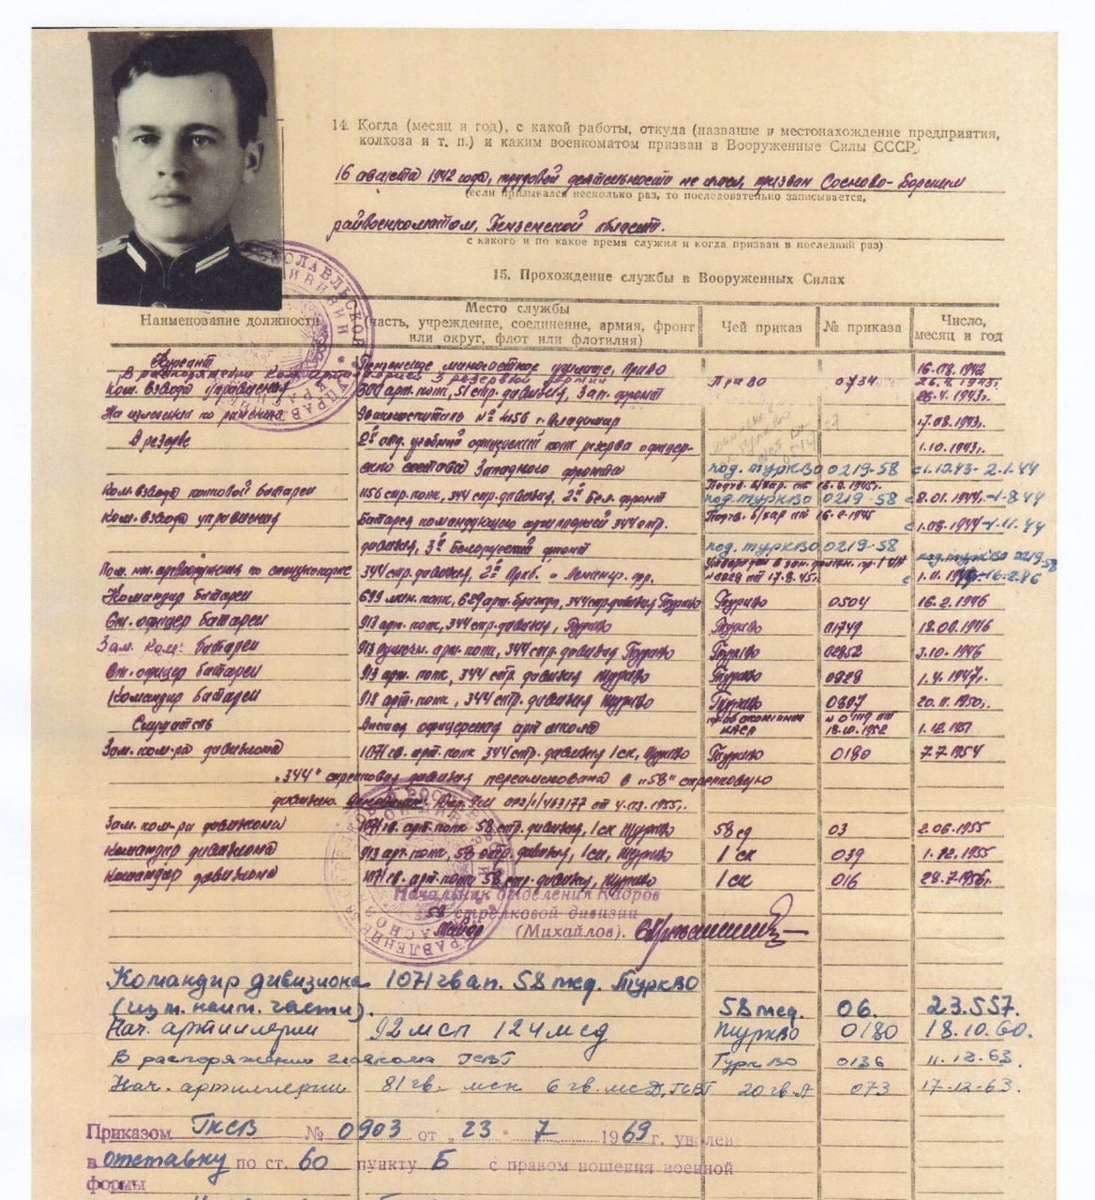 14. Когда (месяц и год), с какой работы, откуда (название и местонахождение предприятия,
колхоза и т. п.) и каким военкоматом призван в Вооруженные Силы СССР.
16 августа 1942 года, трудовой деятельности не имел, призван Сосново-Борским
(если призывался несколько раз, то последовательно записывается,
райвоенкоматом, Пензенской области.
с какого и по какое время служил и когда призван в последний раз)
15. Прохождение службы в Вооруженных Силах
Наименование должности
Место службы (часть, учреждение, соединение, армия, фронт или округ, флот или флотилия)
Чей приказ
№ приказа
Число, месяц и год
Курсант училище, Приво 16.08.1942
В распоряжении резервной армии Приво 0734 26.4.1943г.
Ком. взвода управления арт. полк, 51 стр. дивизии, Зап. фронт 26.4.1943г.
На излечении по ранению Эвакогоспиталь г. Владимир 17.08.1943г.
В резерве полк резерва офицер- 1.10.1943г.
ского состава Западного фронта под. туркво 0219-58 с 1.10.43 - 2.1.44
Ком. взвода полковой батареи 1156 стр. полк, 344 стр. дивизии, 2й Бел. фронт под. туркво 0219-58
Ком. взвода управления Батарея командующего артиллерией 344 стр. с 1.08.1944 - 1.11.44
дивизии, 3й Белорусский фронт под. туркво 0219-58
344 стр. дивизия, 2й Приб. и Ленингр. фр.
Командир батареи 344 стр. дивизия Туркво Туркво 0504 16.2.1946
Ст. офицер батареи 913 арт. полк, 344 стр. дивизии, Туркво Туркво 01749 18.06.1946
Зам. Ком. батареи 913 пушечн. арт. полк, 344 стр. дивизия Туркво Туркво 02852 3.10.1946
Ст. офицер батареи 913 арт. полк, 344 стр. дивизии Туркво Туркво 0828 1.4.1947г.
Командир батареи 913 арт. полк, 344 стр. дивизии Туркво Туркво 0897 20.11.1950г.
Слушатель Высшая офицерская арт школа 18.10.1952 1.12.1951
Зам. ком-ра дивизиона 1071 гв. арт. полк 344 стр. дивизии 1 ск, Туркво Туркво 0180 7.7.1954
„344" стрелковая дивизия переименована в „58" стрелковую
дивизию. от 4.03.1955г.
Зам. ком-ра дивизиона 1071 гв. арт. полк 58 стр. дивизии, 1 ск Туркво 58 сд 03 2.06.1955
Командир дивизиона 913 арт. полк, 58 стр. дивизии, 1 ск, Туркво 1 ск 039 1.12.1955
Командир дивизиона 1071 гв. арт. полк 58 стр. дивизии, Туркво 1 ск 016 28.7.1956г.
Начальник отделения Кадров
58 стрелковой дивизии
Майор (Михайлов).
Командир дивизиона 1071 гв ап. 58 мсд. Туркво
(изм. наим. части). 58 мсд. 06. 23.5.57.
Нач. артиллерии 92 мсп 124 мсд Туркво 0180 18.10.60.
В распоряжении главкома ГСВГ Туркво 0136 11.12.63.
Нач. артиллерии 81 гв. мсп 6 гв. мсд, ГСВГ 20 гв. А 073 17.12.63.
Приказом ГкСВ № 0903 от „23" 7 1969 г. уволен
в отставку по ст. 60 пункту Б с правом ношения военной
формы